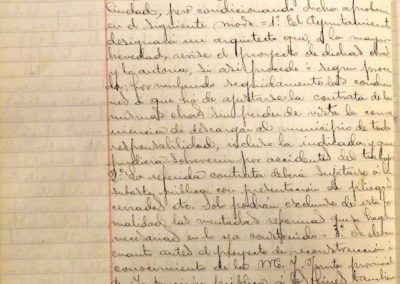 Ciudad, pero condicionando dicha aprobación
en el siguiente modo = 1º El Ayuntamiento
designará un arquitecto que, á la mayor
brevedad, revise el proyecto de dichas obras
y lo autorice, si así procede ó según proce
da, formulando seguidamente las condicio
nes á que ha de ajustarse la contrata de las
mismas obras sin perder de vista la conve
niencia de descargar al municipio de toda
responsabilidad, incluso la indicada y que
pudiera sobrevenir por accidentes del trabajo
2º La referida contrata deberá sujetarse á
subasta pública con presentación de pliegos
cerrados etc. Solo podrán excluirse de esta for
malidad las mentadas reformas que se hagan
necesarias en lo ya construido = 3º Se eleve
cuanto antes el proyecto de reconstrucción á
conocimiento de la Junta provincial
de Instrucción pública á los fines